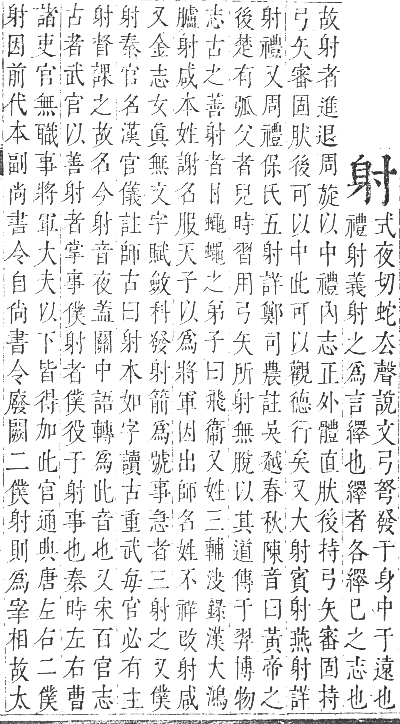 射
式夜切蛇去聲說文弓弩發于身中于遠也
禮射義射之爲言繹也繹者各繹己之志也
故射者進退周旋以中禮內志正外體直肰後持弓矢審固持
弓矢審固肰後可以中此可以觀德行矣又大射賓射燕射詳
射禮又周禮保氏五射詳鄭司農註吳越春秋陳音曰黃帝之
後楚有弧父者兒時習用弓矢所射無脫以其道傳于羿博物
志古之善射者甘蠅蠅之弟子曰飛衞又姓三輔決錄漢大鴻
臚射咸本姓謝名服天子以爲將軍因出師名姓不祥改射咸
又金志女眞無文字賦斂科發射箭爲號事急者三射之又僕
射秦官名漢官儀註師古曰射本如字讀古重武每官必有主
射督課之故名今射音夜蓋關中語轉爲此音也又宋百官志
古者武官以善射者掌事僕射者僕役于射事也秦時左右曹
諸吏官無職事將軍大夫以下皆得加此官通典唐左右二僕
射因前代本副尚書令自尚書令廢闕二僕射則爲宰相故太